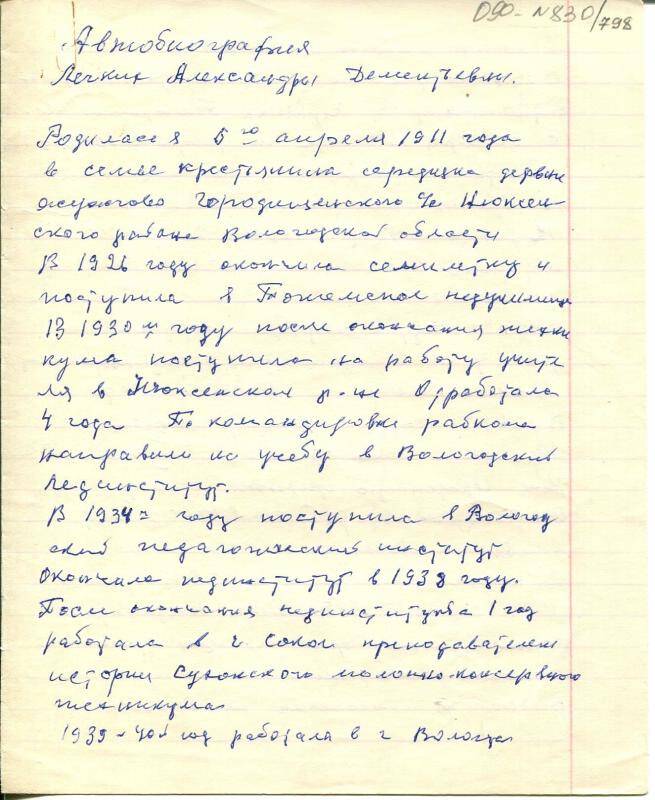 090-N830/798
Автобиография
Лечкин Александры Дементьевны.
Родилась я 5го апреля 1911 года
в семье крестьянина середняка деревни
Городищенского с/с Нюксен-
ского района Вологодской области
В 1926 году окончила семилетку и
поступила в Тотемское педучилище
В 1930 м году после окончания техни
кума поступила на работу учите
ля в Нюксенском р-не Отработала
4 года По командировке райкома
направили на учебу в Вологодский
Пединститут.
В 1934м году поступила в Вологод
ский педагогический институт
Окончила пединститут в 1938 году.
После окончания пединститута 1 год
работала в г. Сокол преподавателем
истории Сухонского молочно-консервного
техникума
1939-40й год работала в г Вологда